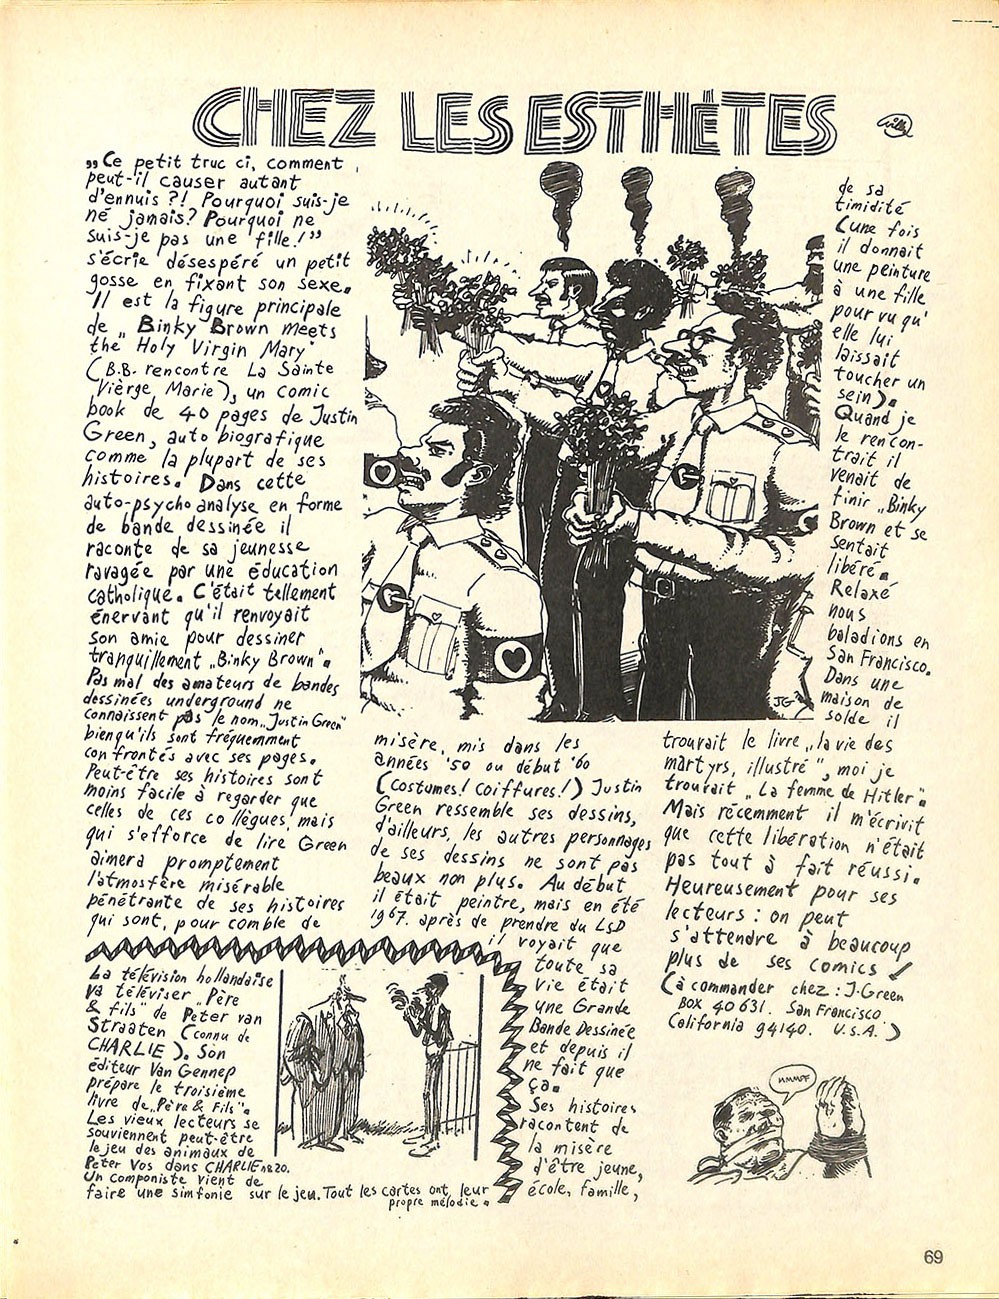 CHEZ LES ESTHÈTES
Willem
„Ce petit truc ci, comment
peut-il causer autant
d'ennuis ?! Pourquoi suis-je
né jamais? Pourquoi ne
suis-je pas une fille!”
s'écrie désespéré un petit
gosse en fixant son sexe.
Il est la figure principale
de „ Binky Brown meets
the Holy Virgin Mary"
(B.B. rencontre La Sainte
Vièrge Marie), un comic
book de 40 pages de Justin
Green, auto biografique
comme la plupart de ses
histoires. Dans cette
auto-psycho analyse en forme
de bande dessinée il
raconte de sa jeunesse
ravagée par une éducation
catholique. C'était tellement
énervant qu'il renvoyait
son amie pour dessiner
tranquillement „Binky Brown".
Pas mal des amateurs de bandes
dessinées underground ne
connaissent pas le nom „Justin Green"
bien qu'ils sont fréquemment
confrontés avec ses pages.
Peut-être ses histoires sont
moins facile à regarder que
celles de ces collègues, mais
qui s'efforce de lire Green
aimera promptement
l'atmosfère misérable
pénétrante de ses histoires
qui sont, pour comble de
misère, mis dans les
années '50 ou début '60
(costumes! Coiffures!) Justin
Green ressemble ses dessins,
d'ailleurs, les autres personnages
de ses dessins ne sont pas
beaux non plus. Au début
il était peintre, mais en été
1967. après de prendre du LSD
il voyait que
toute sa
vie était
une Grande
Bande Dessinée
et depuis il
ne fait que
ça.
Ses histoires
racontent de
la misère
d'être jeune,
école, famille,
de sa
timidité
(une fois
il donnait
une peinture
à une fille
pourvu qu'
elle lui
laissait
toucher un
sein).
Quand je
le rencon-
trait il
venait de
finir „Binky
Brown et se
sentait
libéré.
Relaxé
nous
baladions en
San Francisco.
Dans une
maison de
solde il
trouvait le livre „la vie des
martyrs, illustré", moi je
trouvait „ La femme de Hitler".
Mais récemment il m'écrivit
que cette libération n'était
pas tout à fait réussi.
Heureusement pour ses
lecteurs : on peut
s'attendre à beaucoup
plus de ses comics !
(à commander chez : J. Green
BOX 40631. San Francisco
California 94140. U.S.A.)
JG
MMMPF
La télévision hollandaise
va téléviser „Père
& fils" de Peter van
Straaten (connu de
CHARLIE). Son
éditeur Van Gennep
prépare le troisième
livre de „Père & Fils".
Les vieux lecteurs se
souviennent peut-être
le jeu des animaux de
Peter Vos dans CHARLIE no 20.
Un componiste vient de
faire une simfonie sur le jeu. Tout les cartes ont leur
propre mélodie.
69